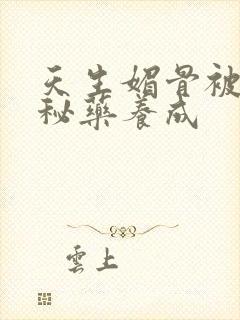 天生媚骨被
秘藥養成
雲上